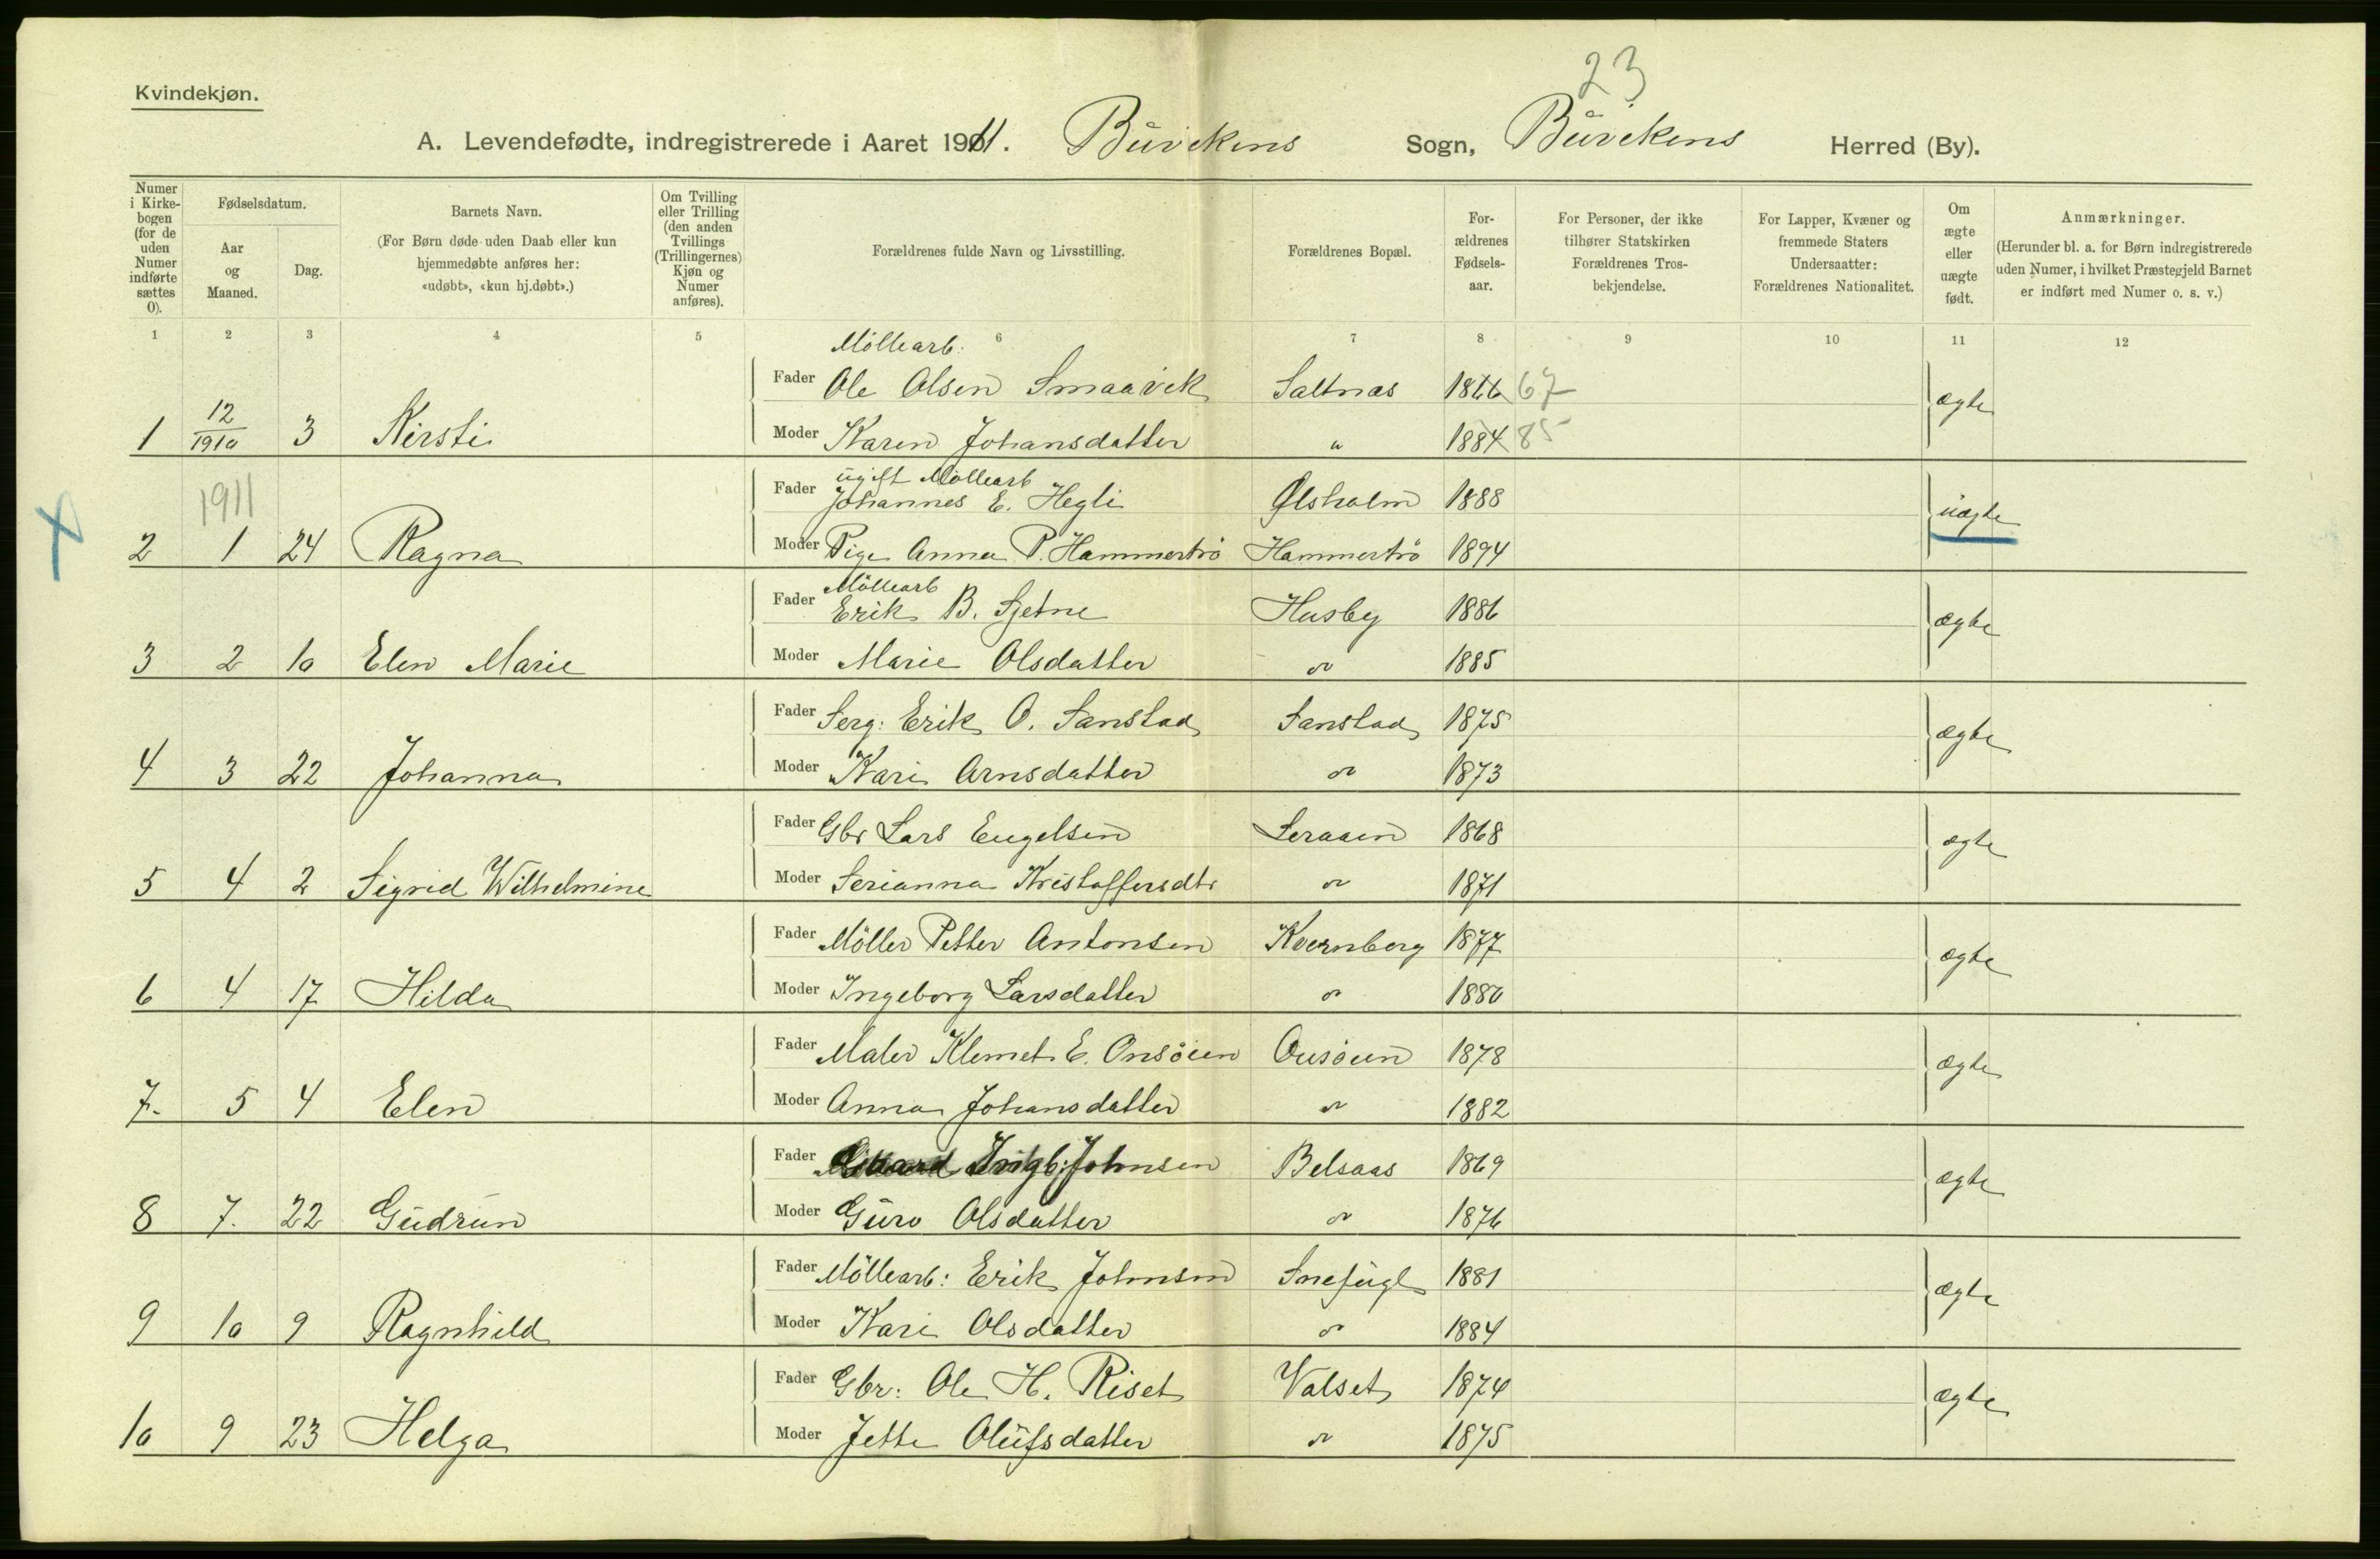 23
Kvindekjøn.
A. Levendefødte, indregistrerede i Aaret 1911. Buvikens Sogn, Buvikens Herred (By).
Numer i Kirkebogen (for de uden Numer indførte sættes 0).
Fødselsdatum.
Aar og Maaned.
Dag.
Barnets Navn.
(For Børn døde uden Daab eller kun hjemmedøbte anføres her: «udøbt», «kun hj.døbt».)
Om Tvilling eller Trilling (den anden Tvillings (Trillingernes) Kjøn og Numer anføres).
Forældrenes fulde Navn og Livsstilling.
Forældrenes Bopæl.
Forældrenes Fødselsaar.
For Personer, der ikke tilhører Statskirken Forældrenes Trosbekjendelse.
For Lapper, Kvæner og fremmede Staters Undersaatter: Forældrenes Nationalitet.
Om ægte eller uægte født.
Anmærkninger.
(Herunder bl. a. for Børn indregistrerede uden Numer, i hvilket Præstegjeld Barnet er indført med Numer o. s. v.)
1 2 3 4 5 6 7 8 9 10 11 12
Möllearb.
Fader Ole Olsen Smaavik Saltnas 1866 67 ægte
1 12/1910 3 Kirsti Moder Karen Johansdatter " 1884 85
1911
ugift Möllearb
Fader Johannes E. Hegli Ølsholm 1888 uægte
2 1 24 Ragna Moder Pige Anna P. Hammertrö Hammertrö 1894
Möllearb
Fader Erik B. Sjetne Husby 1886 ægte
3 2 10 Elen Marie Moder Marie Olsdatter " 1885
Fader Serg: Erik O. Sanstad Sanstad 1875 ægte
4 3 22 Johanna Moder Kari Arnsdatter " 1873
Fader Gbr Lars Engelsen Leraaen 1868 ægte
5 4 2 Sigrid Wilhelmine Moder Serianna Kristoffersdtr " 1871
Fader Möller Petter Antonsen Kvernberg 1877 ægte
6 4 17 Hilda Moder Ingeborg Larsdatter " 1880
Fader Maler Klemet E. Onsöien Onsöien 1878 ægte
7. 5 4 Elen Moder Anna Johansdatter " 1882
Fader Ingb: Johnsen Belsaas 1869 ægte
8 7. 22 Gudrun Moder Guro Olsdatter " 1876
Fader Möllearb: Erik Johnsen Snefugl 1881 ægte
9 10 9 Ragnhild Moder Kari Olsdatter " 1884
Fader Gbr: Ole H. Riset Valset 1874 ægte
10 9 23 Helga Moder Jette Olufsdatter " 1875